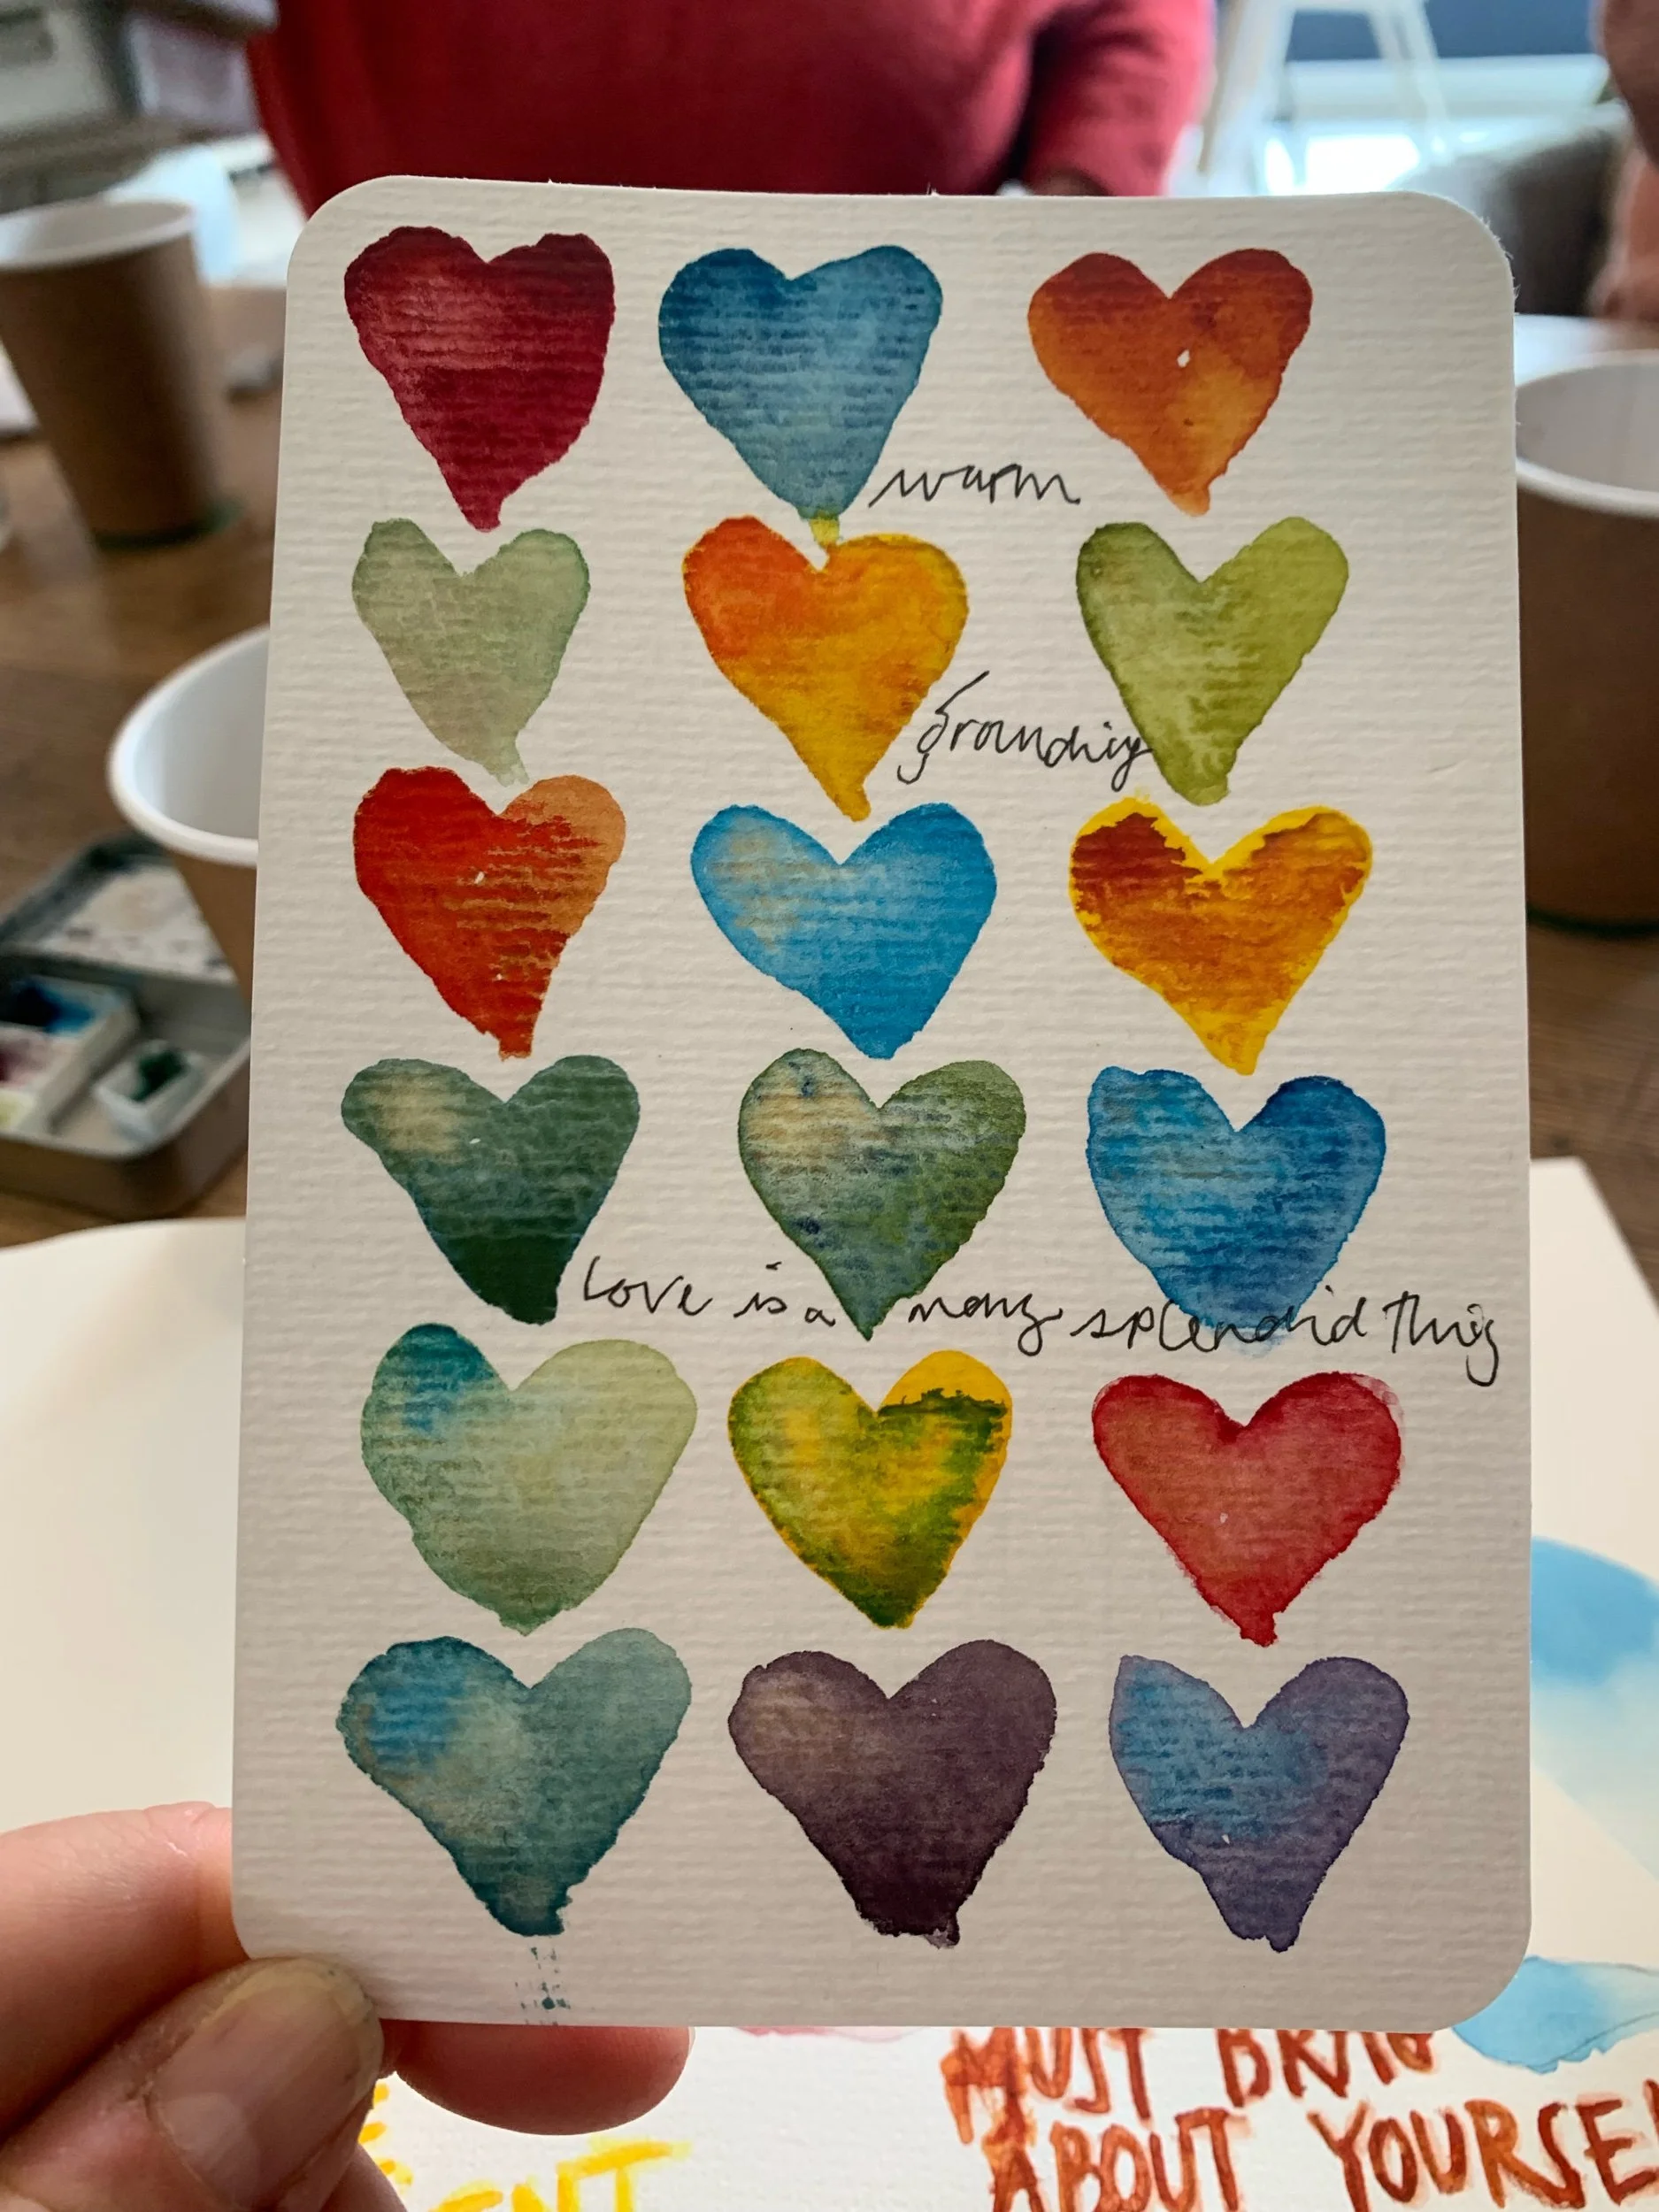 warm
grounding
Love is a many splendid thing
MUST BRING
ABOUT YOURSE